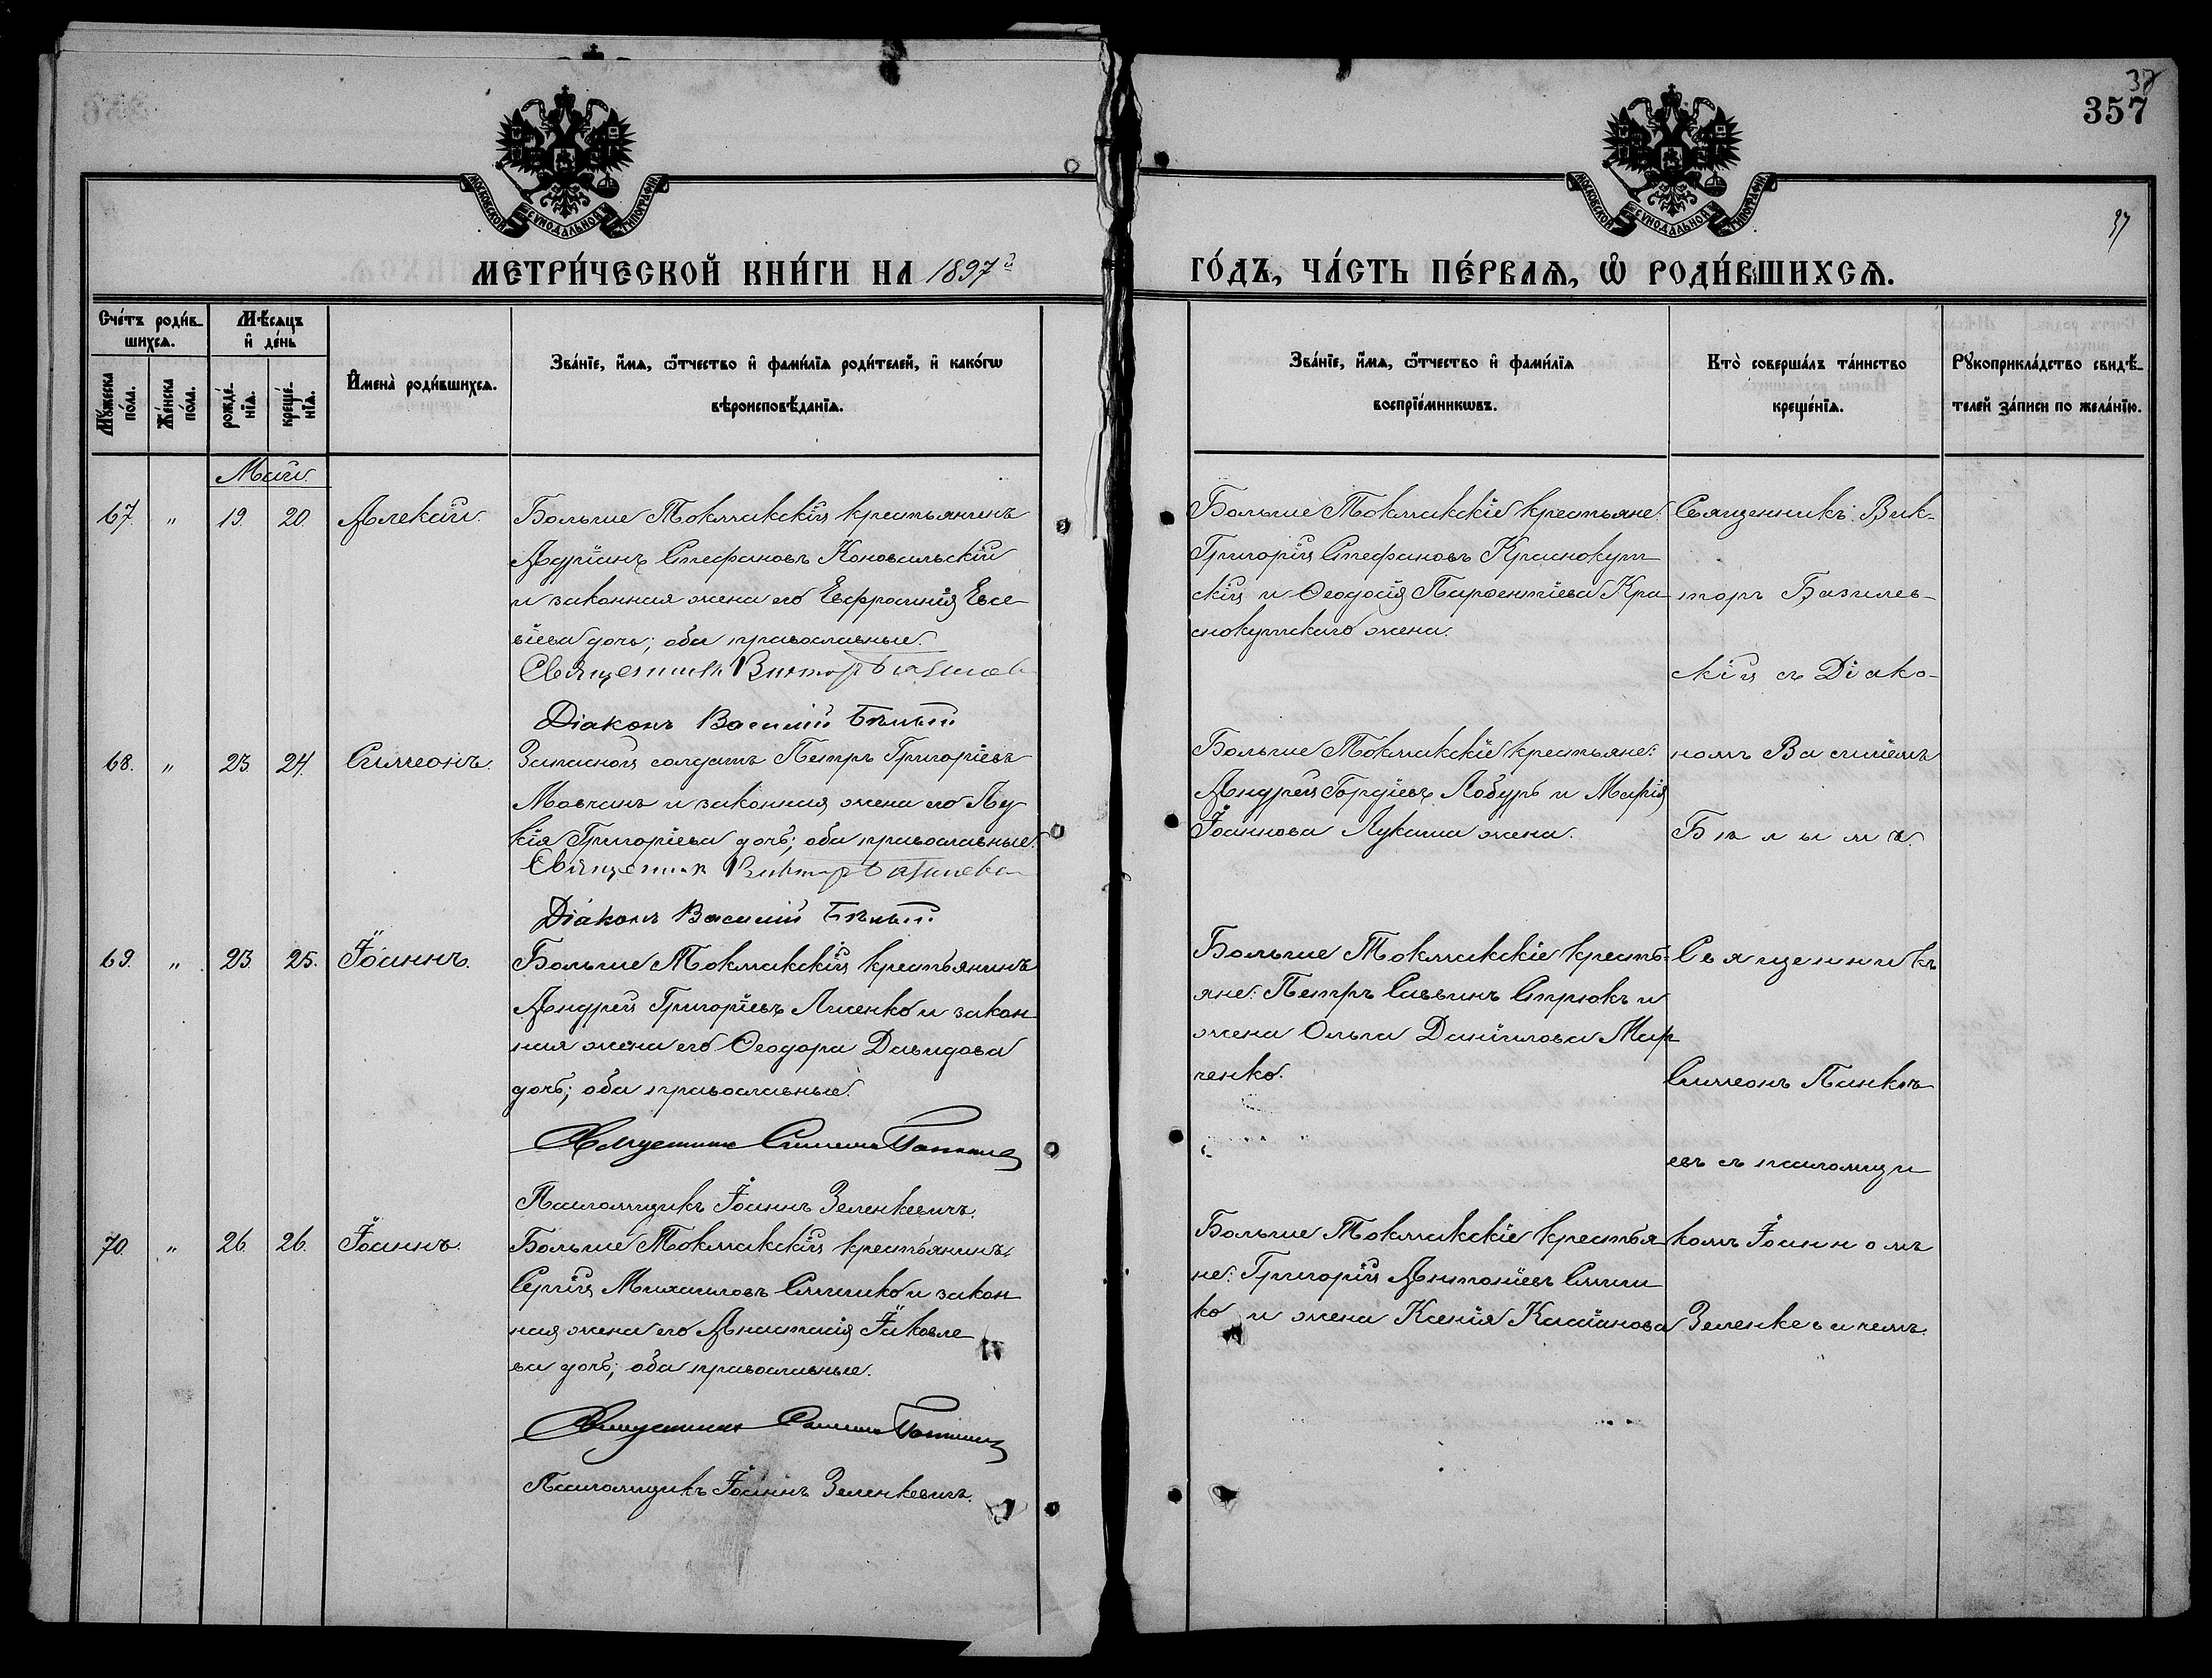 357
МОСКОВСКОЙ СѴНОДАЛЬНОЙ ТИПОГРАФІИ
МОСКОВСКОЙ СѴНОДАЛЬНОЙ ТИПОГРАФІИ
37
МЕТРИ́ЧЕСКОЙ КНИ́ГИ НА 1897й
ГО́ДЪ, ЧА́СТЬ ПЕ́РВАѦ, Ѡ҆ РОДИ́ВШИХСѦ.
Сче́тъ роди́вшихсѧ.
Мѣ́сѧцъ и҆ де́нь
Мꙋ́жеска по́ла.
Же́нска по́ла.
рожде́нїѧ.
креще́нїѧ.
И҆мена̀ роди́вшихсѧ.
Зва́нїе, и҆́мѧ, ѻ҆́тчество и҆ фами́лїѧ роди́телей, и҆ како́гѡ
вѣроисповѣ́данїѧ.
Зва́нїе, и҆́мѧ, ѻ҆́тчество и҆ фами́лїѧ
воспрїе́мникѡвъ.
Кто̀ соверша́лъ та́инство
креще́нїѧ.
Рꙋкоприкла́дство свидѣ́-
телей за́писи по жела́нїю.
Май.
67. " 19. 20. Алексій.
Больше Токмакскій крестьянинъ
Адріанъ Стефановъ Коновальскій
и законная жена его Евфросинія Евсе-
віева дочь; оба православные.
Священникъ Викторъ Базилев
Діаконъ Василій Бѣлый
Больше Токмакскіе крестьяне:
Григорій Стефановъ Краснокут
скій и Ѳеодосія Парѳентіева Кра
снокутскаго жена.
Священникъ Вик-
торъ Базилев-
скій съ Діако-
68. " 23. 24. Симеонъ.
Запасной солдатъ Петръ Григоріевъ
Мовчанъ и законная жена его Лу
кія Григоріева дочь; оба православные.
Священник Викторъ Базилевс
Діаконъ Василій Бѣлый
Больше Токмакскіе крестьяне:
Андрей Гордіевъ Лобуръ и Марія
Іоаннова Лукаша жена.
номъ Василіемъ
Бѣлымъ.
69. " 23. 25. Іоаннъ.
Больше Токмакскій крестьянинъ
Андрей Григоріевъ Лисенко и закон
ная жена его Ѳеодора Давидова
дочь; оба православные.
Симеонъ
Псаломщикъ Іоаннъ Зеленкевичъ.
Больше Токмакскіе кресть-
яне: Петръ Саввинъ Стрюкъ и
жена Ольга Даніилова Мар
ченко.
Священникъ
Симеонъ Панкѣ
евъ съ псаломщи
70. " 26. 26. Іоаннъ.
Больше Токмакскій крестьянинъ
Сергій Михаиловъ Сишко и закон
ная жена его Анастасія Іаковле
ва дочь; оба православные.
Псаломщикъ Іоаннъ Зеленкевичъ.
Больше Токмакскіе крестья
не: Григорій Антоніевъ Сиш
ко и жена Ксенія Касіанова
комъ Іоанномъ
Зеленкевичемъ.